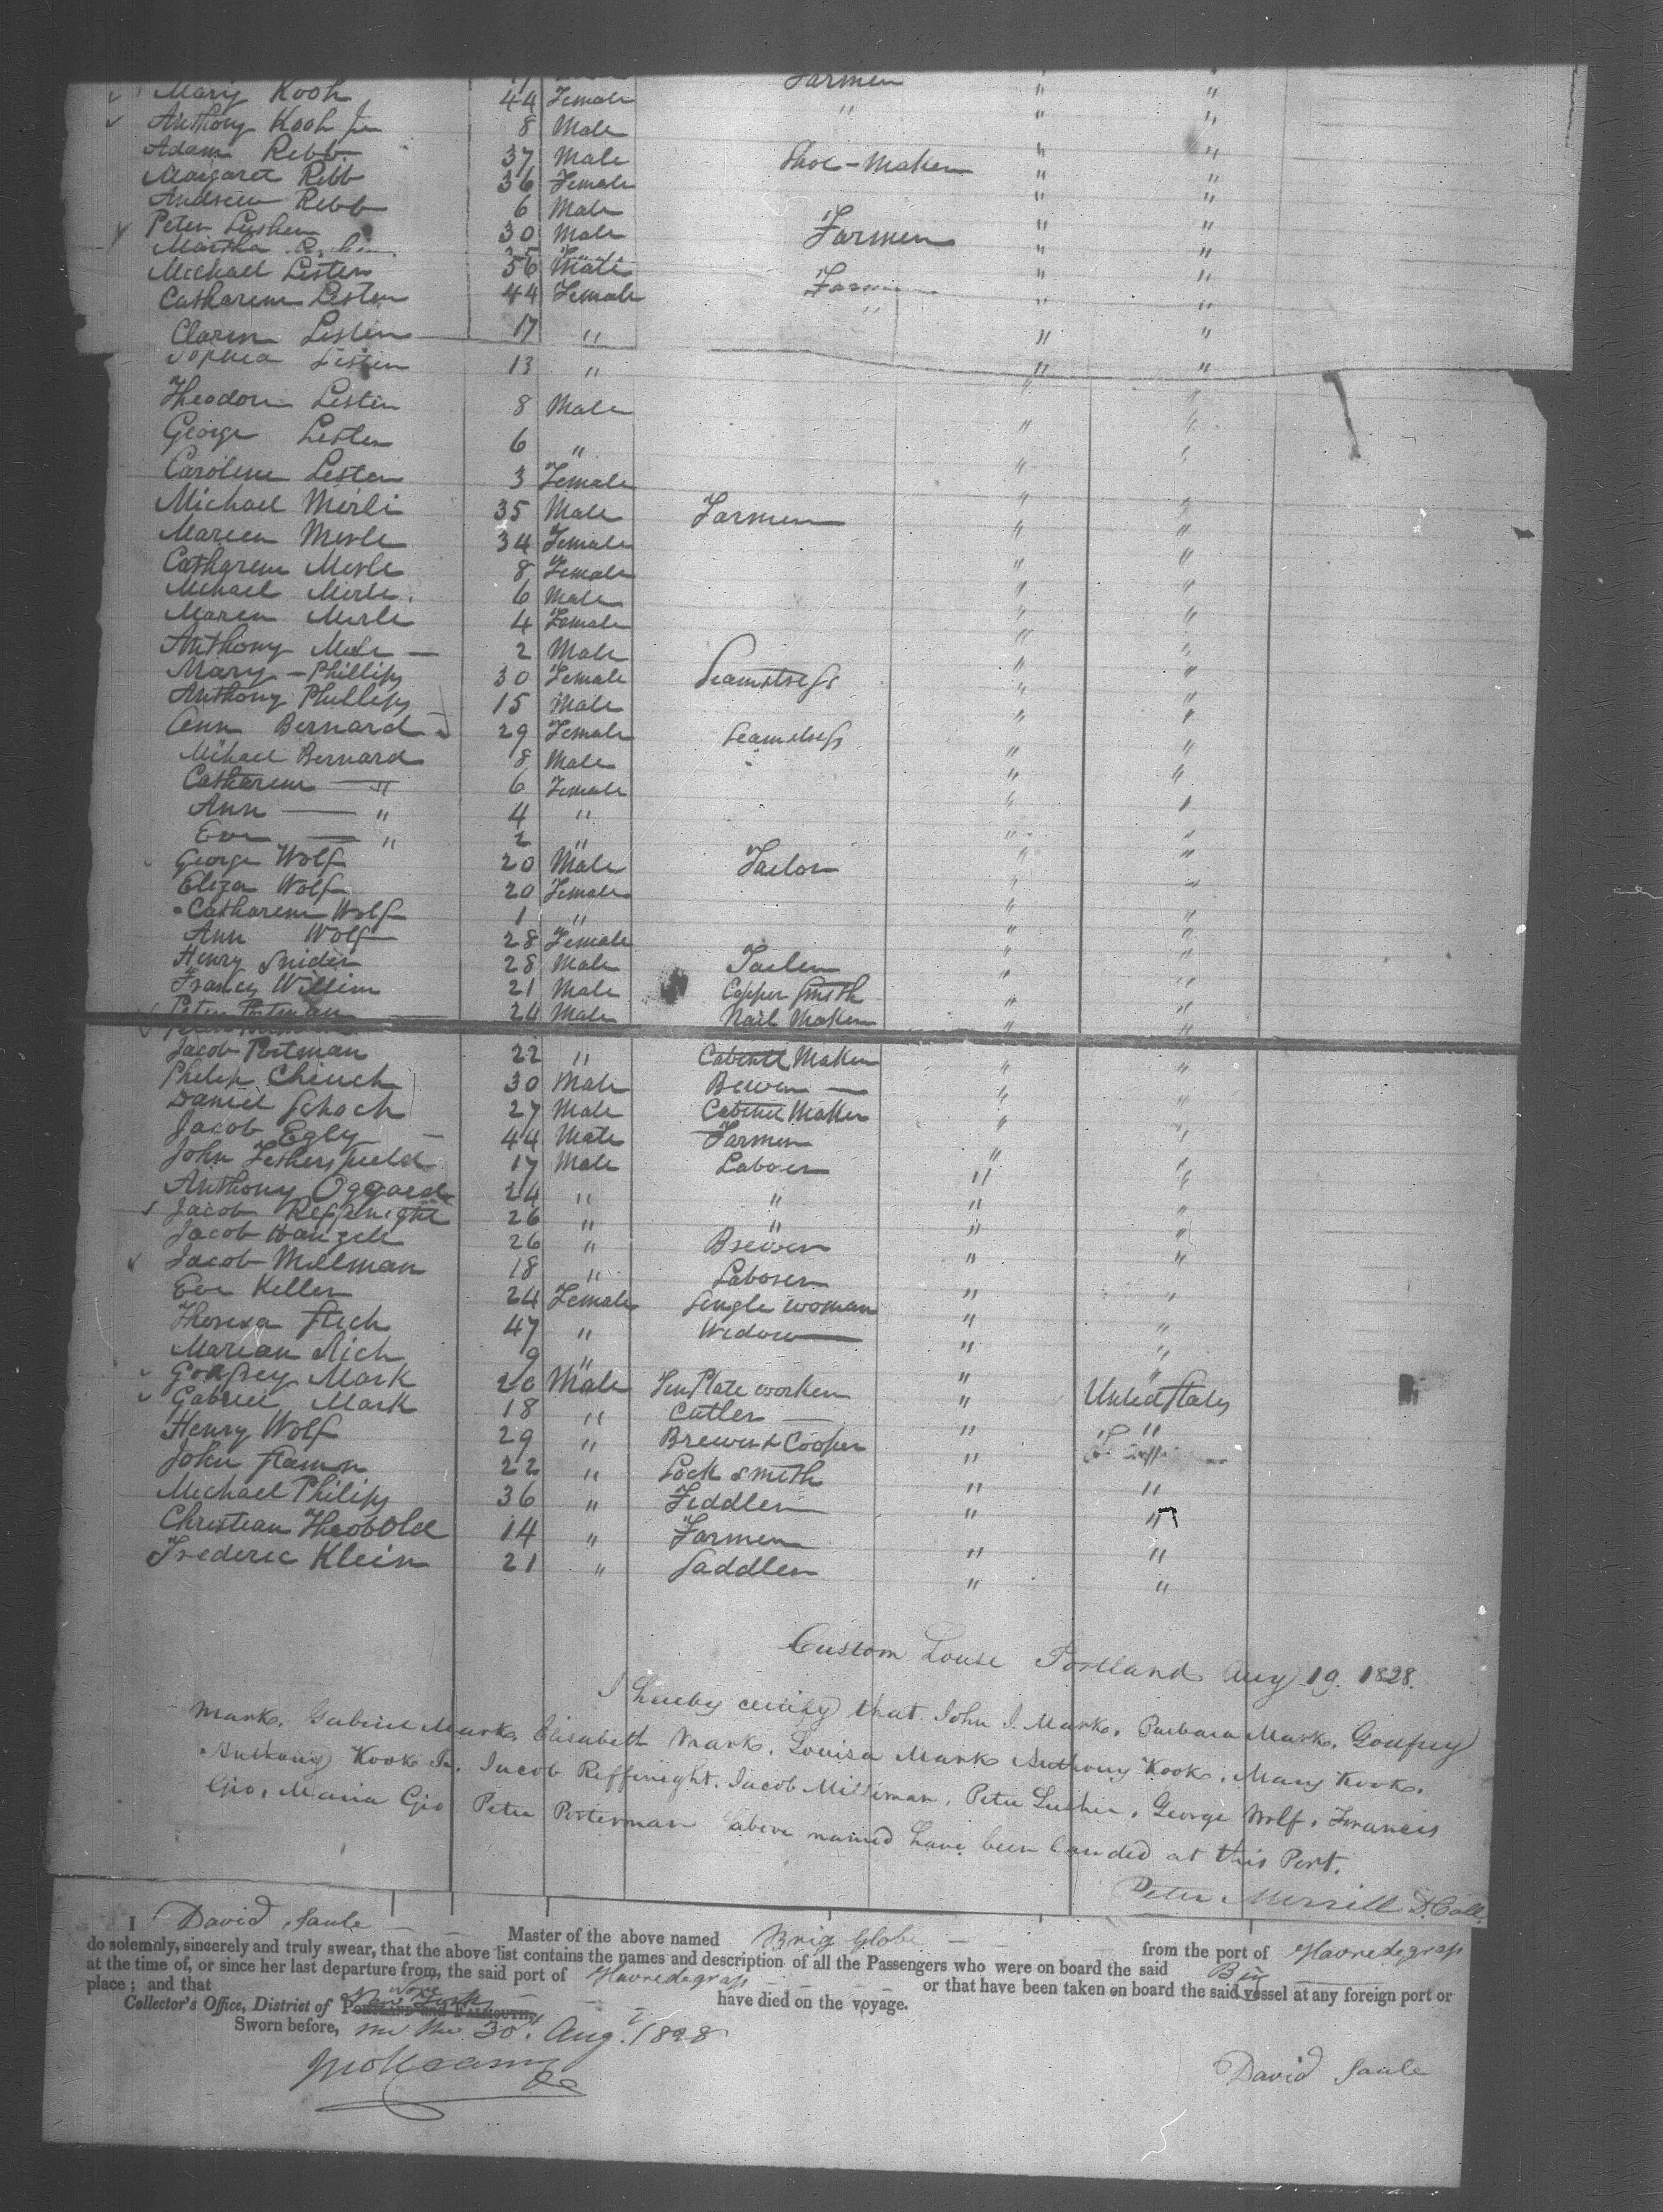 Farmer " "
Mary Kooh 44 Female " " "
Anthony Kooh Jr 8 Male " "
Adam Rebb 37 Male Shoe-Maker " "
Margaret Rebb 36 Female " "
Andrew Rebb 6 Male " "
Peter Lusher 30 Male Farmer " "
Martha
Michael Lester 56 Male Farmer " "
Catharine Lester 44 Female " " "
Claren Lester 17 " " "
Sophia Lester 13 " " "
Theodore Lester 8 Male " "
George Lester 6 " " "
Caroline Lester 3 Female " "
Michael Merli 35 Male Farmer " "
Mareen Merle 34 Female " "
Catharine Merle 8 Female " "
Michael Merle 6 Male " "
Maren Merle 4 Female " "
Anthony Merle 2 Male " "
Mary - Phillips 30 Female Seamstress " "
Anthony Phillips 15 Male " "
Ann Bernard 29 Female Seamstress " "
Michael Bernard 8 Male " "
Catharine — " 6 Female " "
Ann — " 4 " " "
Eve — " 2 " " "
George Wolf 20 Male Tailor " "
Eliza Wolf 20 Female " "
Catharine Wolf 1 " " "
Ann Wolf 28 Female " "
Henry Snider 28 Male Tailer " "
Francis Willim 21 Male Copper Smith " "
Peter Potman 24 Male Nail Maker " "
Jacob Potman 22 " Cabinet Maker " "
Philip Cheuch 30 Male Brewer — " "
Daniel Schoch 27 Male Cabinet Maker " "
Jacob Egly 44 Male Farmer " "
John Fethersfield 17 Male Laborer " "
Anthony Oggard 24 " " " "
Jacob Reffenight 26 " " " "
Jacob Wanzele 26 " Brewer " "
Jacob Millman 18 " Laborer
Eve Keller 24 Female Single Woman " "
Theresa Stich 47 " Widow " "
Marian Sich 9 " " "
Gonfrey Mark 20 Male Tin Plate worker " United States
Gabriel Mark 18 " Cutler — " "
Henry Wolf 29 " Brewer & Cooper "
John Stamn 22 " Lock Smith " "
Michael Philips 36 " Feddler " "
Christian Theobold 14 " Farmer " "
Frederic Klein 21 " Saddler " "
Custom House Portland Aug 19. 1828.
I hereby certify that John J. Mark, Barbara Mark, Goufrey
Mark, Gabriel Mark, Elisabeth Mark, Louisa Mark Anthony Kook, Mary Kook,
Anthony Kook Jr, Jacob Reffenight, Jacob Milliman, Peter Lusher, George Wolf, Francis
Gio, Maria Gio Peter Porterman above named have been landed at this Port.
Peter Merrill D. Coll.
I David Saule Master of the above named Brig Globe from the port of Havredegrass
do solemnly, sincerely and truly swear, that the above list contains the names and description of all the Passengers who were on board the said Brig
at the time of, or since her last departure from, the said port of Havredegrass or that have been taken on board the said vessel at any foreign port or
place; and that have died on the voyage.
Collector's Office, District of PORTLAND AND FALMOUTH, New York
Sworn before, me this 30th Aug. 1828
David Saule